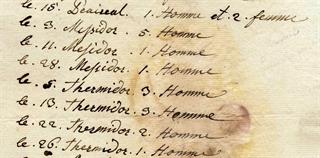 le. 15. Praireal. 1. Homme et 2. femme
le. 3. Messidor. 5. Homme
le. 11. Messidor. 1. Homme
le. 28. Messidor. 1. Homme
le. 5. Thermidor. 3. Homme
le. 13. Thermidor. 3. Homme
le. 22. Thermidor. 2. Homme
le. 26. Thermidor. 1. Homme